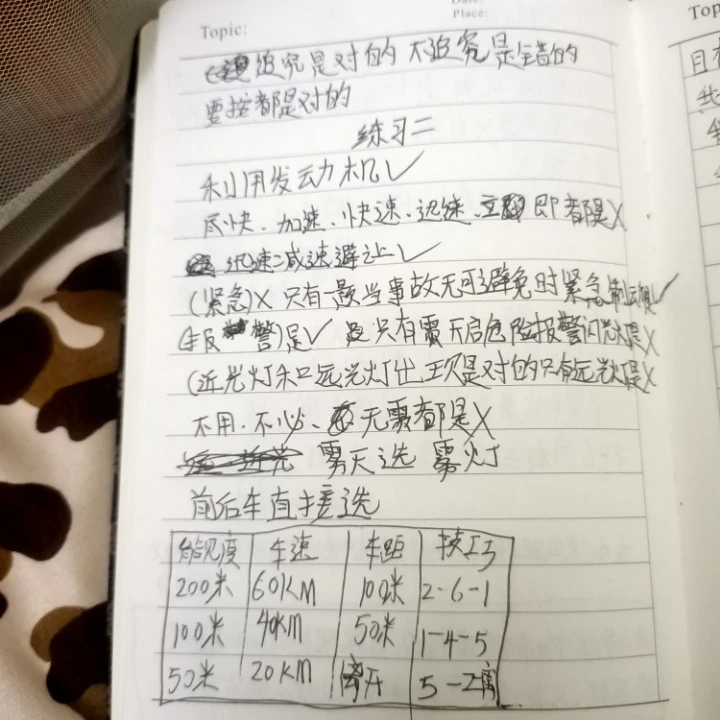 Place:
Topic:
Top
追究是对的 不追究是错的
要按都是对的
练习二
利用发动机✓
尽快、加速、快速、迅速、立即都是X
迅速减速避让✓
(紧急)X 只有一题当事故无可避免时紧急制动是✓
(报警)是✓ 只有雾天启危险报警闪光灯是X
(近光灯和远光灯出现是对的只有远光灯是X
不用、不必、无需都是X
雾天选 雾灯
前后车直接选
能见度 车速 车距 技巧
200米 60KM 100米 2-6-1
100米 40KM 50米 1-4-5
50米 20KM 离开 5-2离